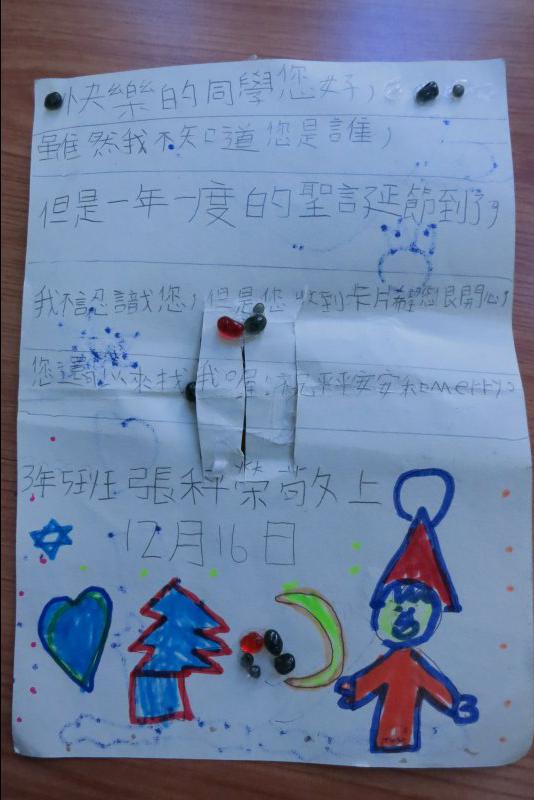 快樂的同學您好，
雖然我不知道您是誰，
但是一年一度的聖誕延節到了，
我不認識您，但是您收到卡片希望您很開心，
您還可以來找我喔！祝平平安安和merry。
3年5班張科榮敬上
12月16日